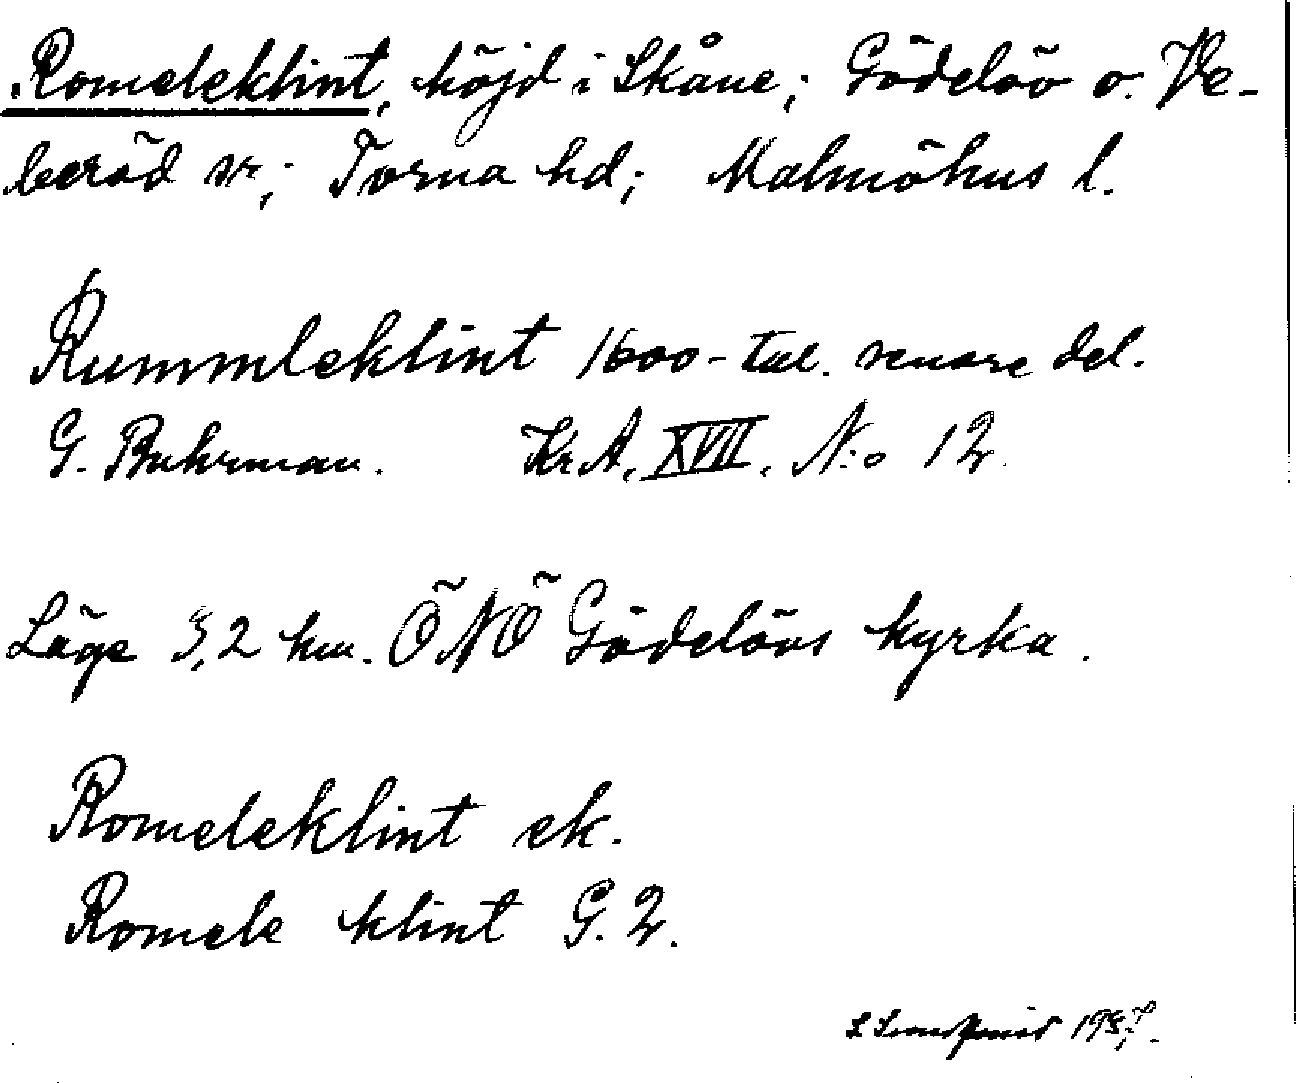 Romeleklint, höjd i Skåne; Gödelöv o. Ve-
beröd sr; Torna hd; Malmöhus l.
Rummleklint 1600-tal. senare del.
G. Buhrman. KrA, XVII, N:o 12.
Läge 3,2 km. ÖNÖ Gödelövs kyrka.
Romeleklint ek.
Romele klint G. 2.